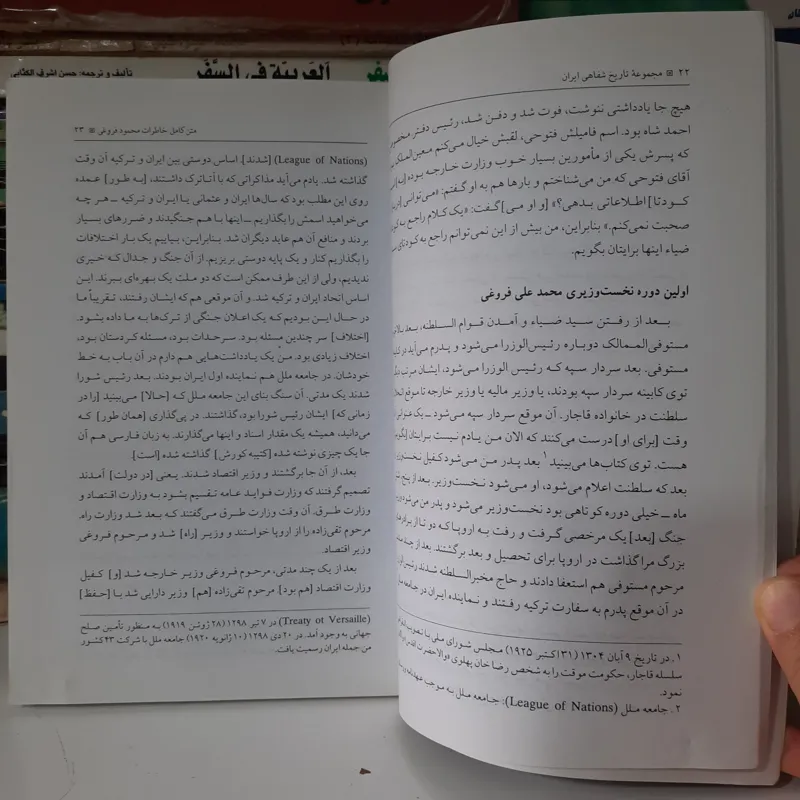 تألیف و ترجمه: حسن اشرف الکتّابی
العَرَبیّة فی السَّفَر
۲۲ ⊠ مجموعهٔ تاریخ شفاهی ایران
هیچ جا یادداشتی ننوشت، فوت شد و دفن شد، رئیس دفتر مخصوص
احمد شاه بود. اسم فامیلش فتوحی، لقبش خیال می‌کنم معین‌الملک
که پسرش یکی از مأمورین بسیار خوب وزارت خارجه بوده
آقای فتوحی که من می‌شناختم و بارها هم به او گفتم: «می‌توانی
کودتا] اطلاعاتی بدهی؟» [و او می] گفت: «یک کلام راجع به
صحبت نمی‌کنم.» بنابراین، من بیش از این نمی‌توانم راجع به کودتای
ضیاء اینها برایتان بگویم.
اولین دوره نخست‌وزیری محمد علی فروغی
بعد از رفتن سید ضیاء و آمدن قوام السلطنه، بعد
مستوفی‌الممالک دوباره رئیس‌الوزرا می‌شود و پدرم می‌آید در
مستوفی. بعد سردار سپه که رئیس الوزرا می‌شود، ایشان مرتب
توی کابینه سردار سپه بودند، یا وزیر مالیه یا وزیر خارجه تا موقع
سلطنت در خانواده قاجار. آن موقع سردار سپه می‌شود ـ یک
وقت [برای او] درست می‌کنند که الان من یادم نیست برایتان
هست. توی کتاب‌ها می‌بینید۱ بعد پدر من می‌شود کفیل
بعد که سلطنت اعلام می‌شود، او می‌شود نخست‌وزیر. بعد از پنج
ماه ـ خیلی دوره کوتاهی بود نخست‌وزیر می‌شود و پدر من می‌شود
جنگ [بعد] یک مرخصی گرفت و رفت به اروپا که دو تا از
بزرگ مرا گذاشت در اروپا برای تحصیل و بعد برگشتند. بعد از چند
مرحوم مستوفی هم استعفا دادند و حاج مخبرالسلطنه شدند رئیس
در آن موقع پدرم به سفارت ترکیه رفتند و نماینده ایران در جامعه
۱. در تاریخ ۹ آبان ۱۳۰۴ (۳۱ اکتبر ۱۹۲۵) مجلس شورای ملی با تصویب
سلسله قاجار، حکومت موقت را به شخص رضا خان پهلوی
نمود.
۲. جامعه ملل (League of Nations): جامعه ملل به موجب عهدنامه
متن کامل خاطرات محمود فروغی ⊠ ۲۳
(League of Nations) [شدند]. اساس دوستی بین ایران و ترکیه آن وقت
گذاشته شد. یادم می‌آید مذاکراتی که با آتاترک داشتند، [به طور] عمده
روی این مطلب بود که سال‌ها ایران و عثمانی یا ایران و ترکیه ـ هر چه
می‌خواهید اسمش را بگذاریم ـ اینها با هم جنگیدند و ضررهای بسیار
بردند و منافع آن هم عاید دیگران شد. بنابراین، بیاییم یک بار اختلافات
را بگذاریم کنار و یک پایه دوستی بریزیم. از آن جنگ و جدال که خیری
ندیدیم، ولی از این طرف ممکن است که دو ملت یک بهره‌ای ببرند. این
اساس اتحاد ایران و ترکیه شد. و آن موقعی هم که ایشان رفتند، تقریباً ما
در حال این بودیم که یک اعلان جنگی از ترک‌ها به ما داده بشود.
[اختلاف] سر چندین مسئله بود. سرحدات بود، مسئله کردستان بود،
اختلاف زیادی بود. من یک یادداشت‌هایی هم دارم در آن باب به خط
خودشان. در جامعه ملل هم نماینده اول ایران بودند. بعد رئیس شورا
شدند یک مدتی. آن سنگ بنای این جامعه ملل که [حالا] می‌بینید [را در
زمانی که] ایشان رئیس شورا بود، گذاشتند. در پی‌گذاری [همان طور] که
می‌دانید، همیشه یک مقدار اسناد و اینها می‌گذارند. به زبان فارسی هم آن
جا یک چیزی نوشته شده [کتیبه کورش] گذاشته شده [است].
بعد، از آن جا برگشتند و وزیر اقتصاد شدند. یعنی [در دولت] آمدند
تصمیم گرفتند که وزارت فواید عامه تقسیم بشود به وزارت اقتصاد و
وزارت طرق. آن وقت وزارت طرق می‌گفتند که بعد شد وزارت راه.
مرحوم تقی‌زاده را از اروپا خواستند و وزیر [راه] شد و مرحوم فروغی
وزیر اقتصاد.
بعد از یک چند مدتی، مرحوم فروغی وزیر خارجه شد [و] کفیل
وزارت اقتصاد [هم بود] مرحوم تقی‌زاده [هم] وزیر دارایی شد با [حفظ]
(Treaty ot Versaille) در ۷ تیر ۱۲۹۸ (۲۸ ژوئن ۱۹۱۹) به منظور تأمین صلح
جهانی به وجود آمد. در ۲۰ دی ۱۲۹۸ (۱۰ ژانویه ۱۹۲۰) جامعه ملل با شرکت ۴۳ کشور
من جمله ایران رسمیت یافت.